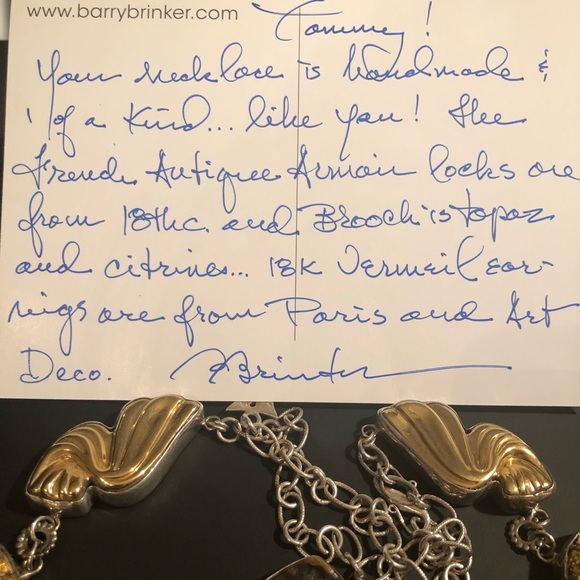 www.barrybrinker.com
Tommy!
Your necklace is handmade &
1 of a Kind... like you! The
French Antique Armoir locks are
from 18thc. and Brooch is topaz
and citrines... 18K Vermeil ear-
rings are from Paris and Art
Deco. Brinker